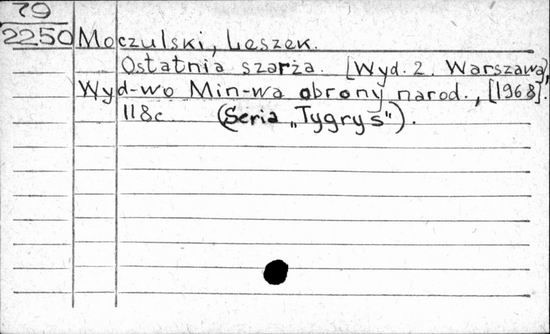 79
2250 Moczulski, Leszek.
Ostatnia szarża. [Wyd. 2. Warszawa],
Wyd-wo Min-wa obrony narod., [1968].
118c (Seria „Tygrys").